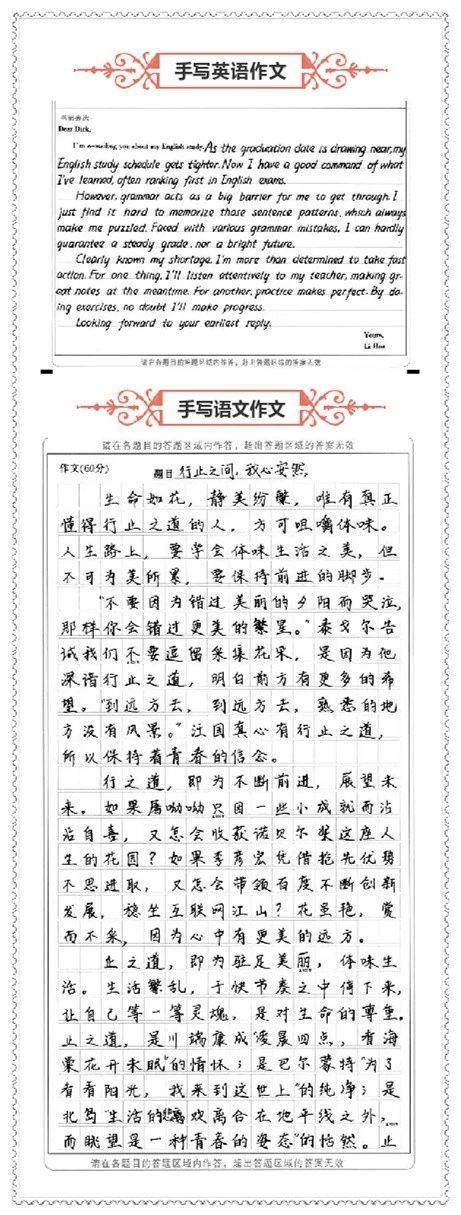 手写英语作文
书面表达
Dear Dick,
I'm e-mailing you about my English study. As the graduation date is drawing near, my
English study schedule gets tighter. Now I have a good command of what
I've learned, often ranking first in English exams.
However, grammar acts as a big barrier for me to get through. I
just find it hard to memorize those sentence patterns, which always
make me puzzled. Faced with various grammar mistakes, I can hardly
guarantee a steady grade, nor a bright future.
Clearly known my shortage, I'm more than determined to take fast
action. For one thing, I'll listen attentively to my teacher, making gr-
eat notes at the meantime. For another, practice makes perfect. By do-
ing exercises, no doubt I'll make progress.
Looking forward to your earliest reply.
Yours,
Li Hua
请在各题目的答题区域内作答，超出答题区域的答案无效
手写语文作文
请在各题目的答题区域内作答，超出答题区域的答案无效
作文(60分)
题目 行止之间，我心安然
生命如花，静美纷繁，唯有真正
懂得行止之道的人，方可咀嚼体味。
人生路上，要学会体味生活之美，但
不可为美所累，要保持前进的脚步。
“不要因为错过美丽的夕阳而哭泣，
那样你会错过更美的繁星。”泰戈尔告
诫我们不要逗留采集花朵，是因为他
深谙行止之道，明白前方有更多的希
望。“到远方去，到远方去，熟悉的地
方没有风景。”汪国真心有行止之道，
所以保持着青春的信念。
行之道，即为不断前进，展望未
来。如果屠呦呦只因一些小成就而沾
沾自喜，又怎会收获诺贝尔奖这座人
生的花园？如果李彦宏凭借抢先优势
不思进取，又怎会带领百度不断创新
发展，稳坐互联网江山？花虽艳，赏
而不采，因为心中有更美的远方。
止之道，即为驻足美丽，体味生
活。生活繁乱，于快节奏之中停下来，
让自己等一等灵魂，是对生命的尊重。
止之道，是川端康成“凌晨四点，看海
棠花开未眠”的情怀；是巴尔蒙特“为了
看看阳光，我来到这世上”的纯净；是
北岛“生活的悲欢离合在地平线之外，
而眺望是一种青春的姿态”的恬然。止
请在各题目的答题区域内作答，超出答题区域的答案无效